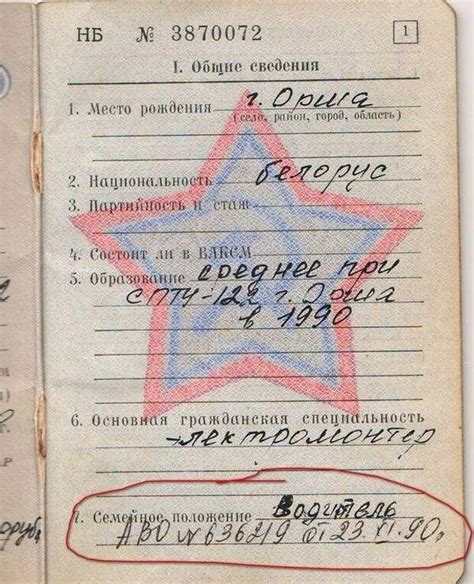 НБ № 3870072 1
I. Общие сведения
1. Место рождения г. Орша
(село, район, город, область)
2. Национальность белорус
3. Партийность и стаж
4. Состоит ли в ВЛКСМ
5. Образование среднее при
СПТУ-122 г. Орша
в 1990
6. Основная гражданская специальность
электромонтер
7. Семейное положение Водитель
АВО № 636219 от 23.XI.90.